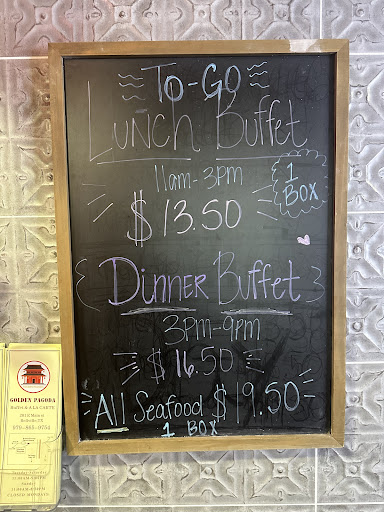 To-Go
Lunch Buffet
11am-3pm
$13.50
1
Box
Dinner Buffet
3pm-9pm
$16.50
All Seafood $19.50
1 Box
GOLDEN PAGODA
979-865-9754
CLOSED MONDAYS